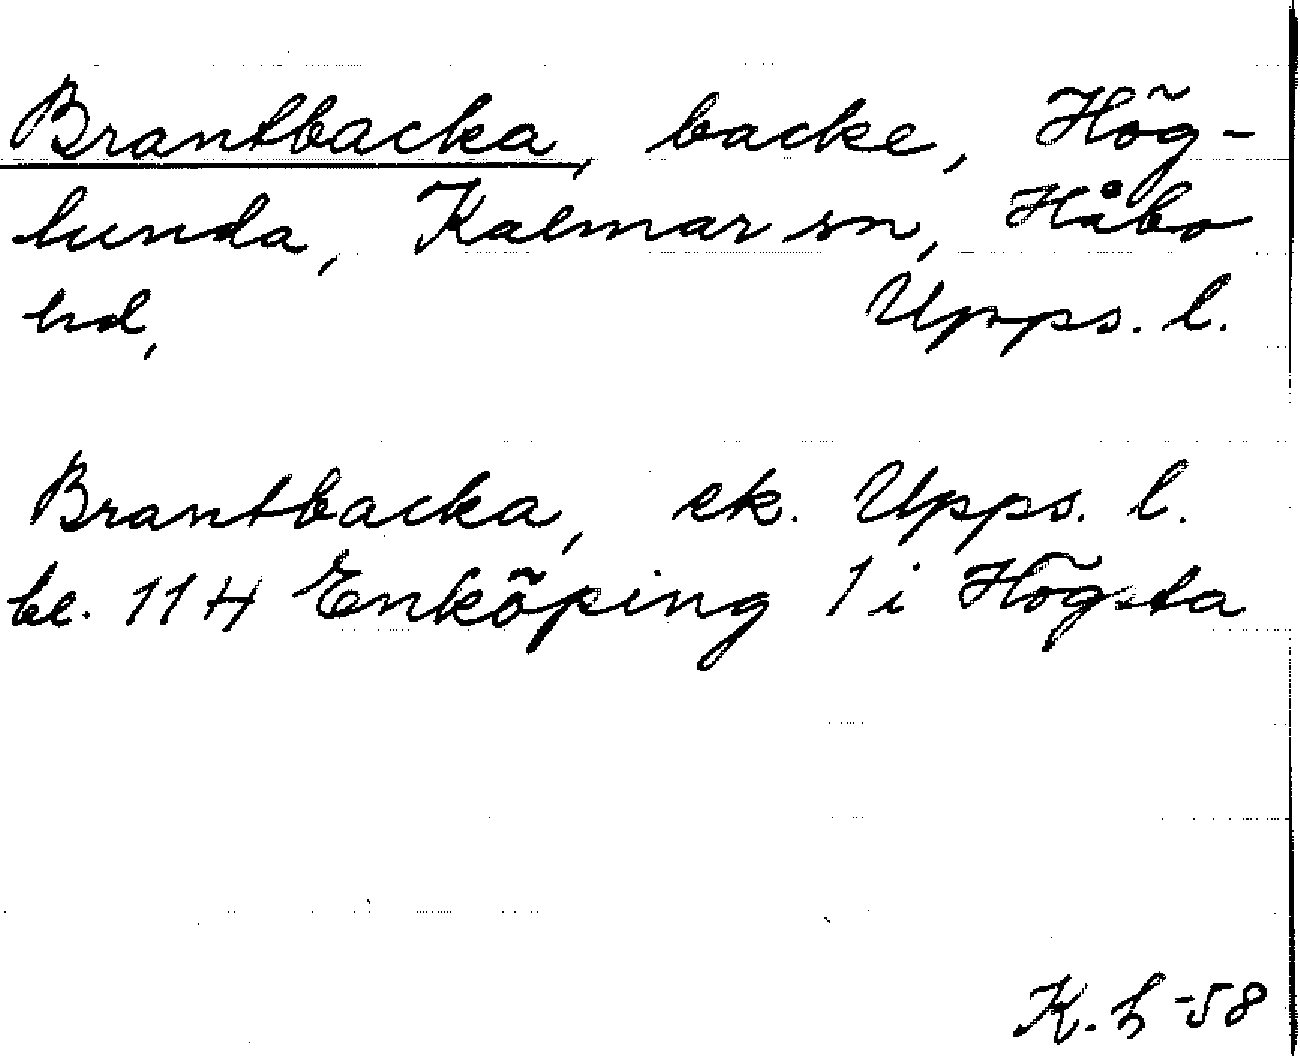 Brantbacka, backe, Hög-
lunda, Kalmar sn, Håbo
hd, Upps. l.
Brantbacka, ek. Upps. l.
bl. 114 Enköping 1 i Högsta
K. h -58